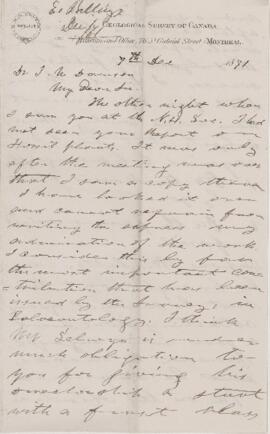 E. Billings
GEOLOGICAL SURVEY OF CANADA
Museum and Office, 76 St Gabriel Street MONTREAL
7th Dec 1871
Dr. J. W. Dawson
My Dear Sir
The other night when
I saw you at the N.H. Soc. I had
not seen your Report on
Fossil plants. It was only
after the meeting was over
that I saw a copy
I have looked it over
and cannot refrain from
writing to express my
admiration of the work
I consider this by far
the most important con
tribution that has been
issued by the Survey, in
Palaeontology. I think
Mr Selwyn is under
much obligation to
you for giving his
directorship a start
with a first class